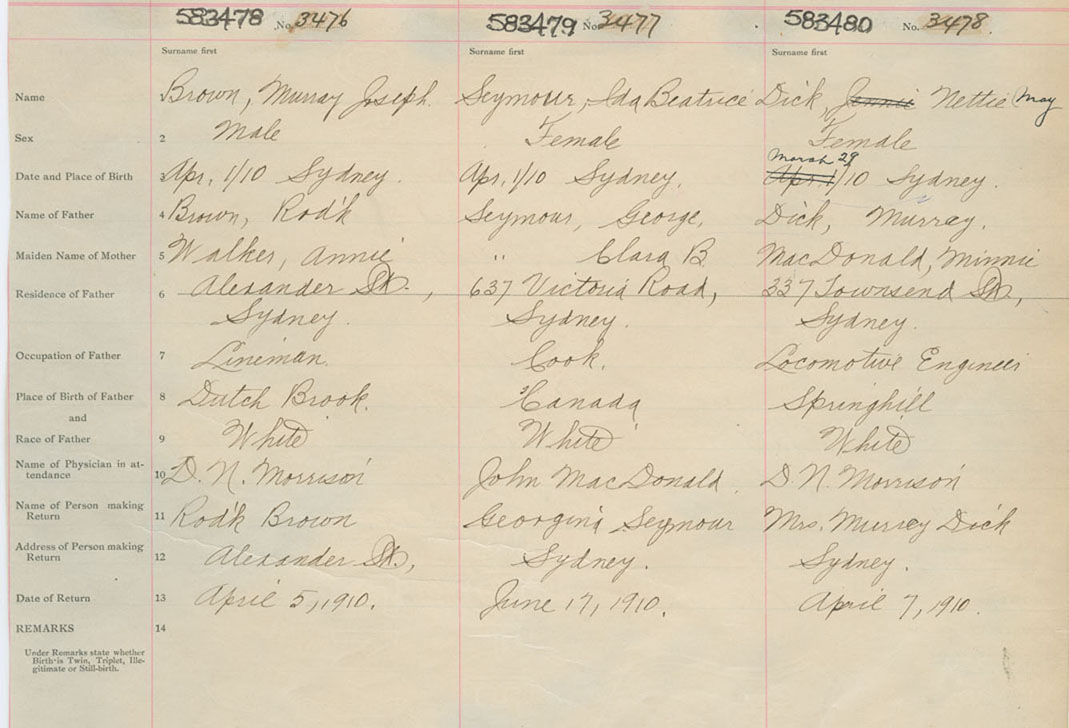 583478 No. 3476 583479 No. 3477 583480 No. 3478
Surname first Surname first Surname first
Name 1 Brown, Murray Joseph Seymour, Ida Beatrice Dick, Jennie Nettie May
Sex 2 Male Female Female
March 29
Date and Place of Birth 3 Apr. 1/10 Sydney. Apr. 1/10 Sydney. Apr 1/10 Sydney.
Name of Father 4 Brown, Rod'k Seymour, George, Dick, Murray.
Maiden Name of Mother 5 Walker, Annie " Clara B MacDonald, Minnie
Residence of Father 6 Alexander St., 637 Victoria Road, 337 Townsend St.,
Sydney. Sydney. Sydney.
Occupation of Father 7 Lineman. Cook. Locomotive Engineer
Place of Birth of Father 8 Dutch Brook. Canada Springhill
and
Race of Father 9 White White White
Name of Physician in at-
tendance 10 D. N. Morrison John MacDonald. D. N. Morrison
Name of Person making
Return 11 Rod'k Brown Georgina Seymour Mrs. Murray Dick
Address of Person making
Return 12 Alexander St., Sydney. Sydney.
Date of Return 13 April 5, 1910. June 17, 1910. April 7, 1910.
REMARKS 14
Under Remarks state whether
Birth is Twin, Triplet, Ille-
gitimate or Still-birth.